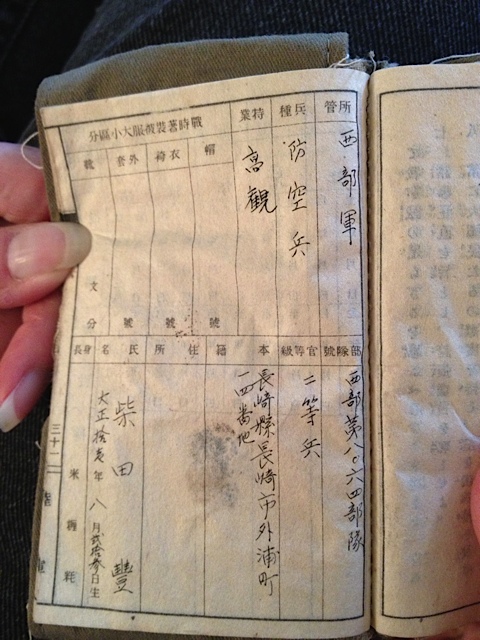 所管
西部軍
兵種
防空兵
特業
高觀
戰時著裝被服大小區分
帽
號
衣袴
號
外套
號
靴
文
分
部隊號
西部第八〇六四部隊
官等級
二等兵
本籍
長崎縣長崎市外浦町
一四番地
住所
氏名
柴田豐
大正拾
年八月貳拾參日生
身長
米
糎
粍